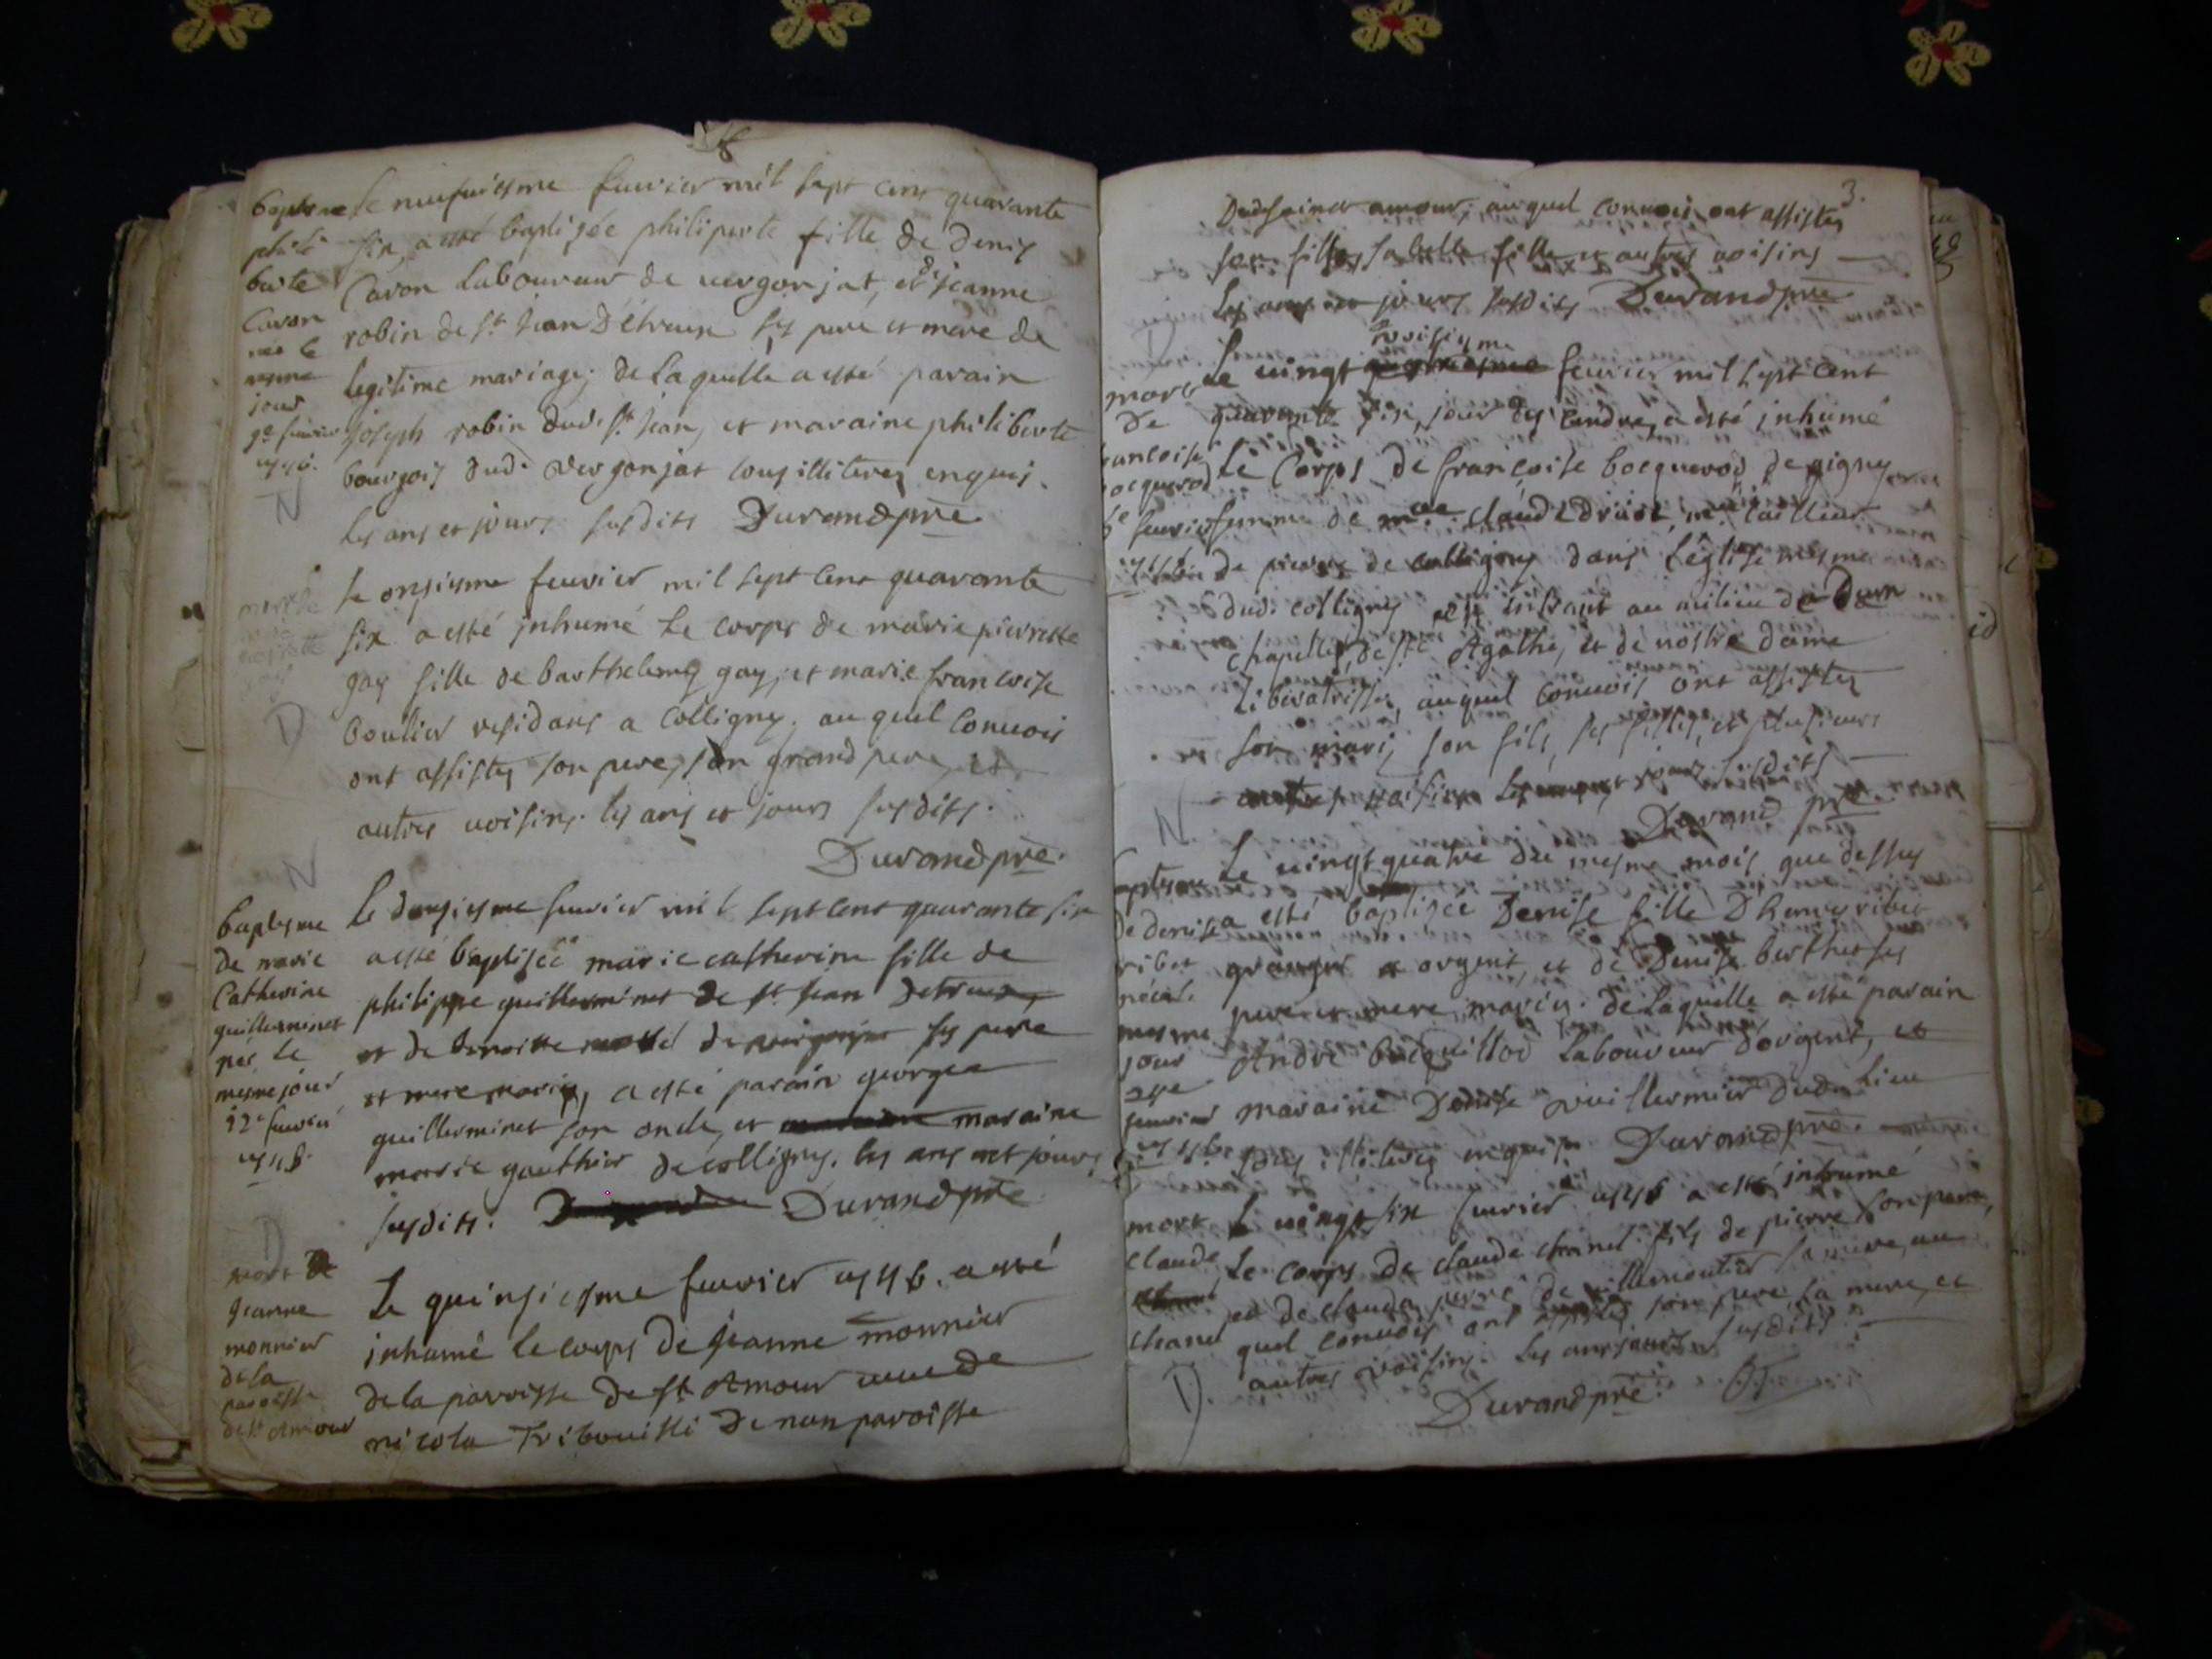 baptesme
phili
berte
Cavon
née le
mesme
jour
9e fevrier
1746.
N
le neufviesme fevrier mil sept cens quarante
six, a esté baptisée philiperte fille de denis
Cavon Laboureur de vergonjat, et de jeanne
robin de st jean D'étreux ses pere et mere de
legitime mariage; de laquelle a esté parain
joseph robin dud. st jean, et maraine philiberte
bourgois dud. vergonjat tous illiteres enquis.
les ans et jours susdits Durand pre
D
le onziesme fevrier mil sept cent quarante
six a esté inhumé le corps de marie pierrette
gay fille de barthelemy gay, et marie francoise
boulier residans a Colligny, au quel convois
ont assistes son pere, son grand pere, et
autres voisins. les ans et jours susdits.
Durand pre.
N
baptesme
de marie
Catherine
guilleminet
née le
mesme jour
12e fevrier
1746.
le douziesme fevrier mil sept cent quarante six
a esté baptisée marie catherine fille de
philippe guilleminet de st jean Detreux,
et de benoitte ses pere
et mere maries, a esté parain george
guilleminet son oncle, et maraine
marie gauthier de colligny. les ans et jours
susdits. Durand pre
D
mort de
jeanne
monnier
de la
paroisse
de st Amour
Le quinziesme fevrier 1746. a esté
inhumé le corps de jeanne monnier
de la paroisse de st Amour veuve de
nicola Tribouilli De nan paroisse
3.
Dud sainct amour, auquel convois ont assistes
son fille, sa belle fille et autres voisins
les ans et jours susdits Durand pre
mort
De
francoise
bocquerod
fevrier
Le vingt troisiesme fevrier mil sept cent
quarante six, jour des cendres, a esté inhumé
Le Corps de francoise bocquerod de gigny
femme de claude druot, me tailleur
de pierre de colligny dans L'église mesme
dud. colligny au milieu de deux
chapelles, de ste Agathe, et de nostre dame
Liberatrisse, auquel convois ont assistes
son mari, son fils, ses filles, et plusieurs
autres voisins les ans et jours susdits
Durand pre
N
baptesme
de denise
ribet
née le
mesme
jour
fevrier
1746.
Le vingt quatre du mesme mois que dessus
a esté baptisée Denise fille D'henry ribet
granger a orgent, et de Denise berthet ses
pere et mere maries. de laquelle a esté parain
André bocquillod Laboureur d'orgent, et
maraine Denise vuillermier dud. Lieu
tous illiteres enquis Durand pre.
mort
Claude
Chanel
D.
Le vingt six fevrier 1746 a esté inhumé
Le corps de claude chanel fils de pierre son pere,
et de clauda perré de villemoutier sa mere, au
quel convois ont assistes son pere, sa mere, et
autres voisins. Les ans jours susdits.
Durand pre.